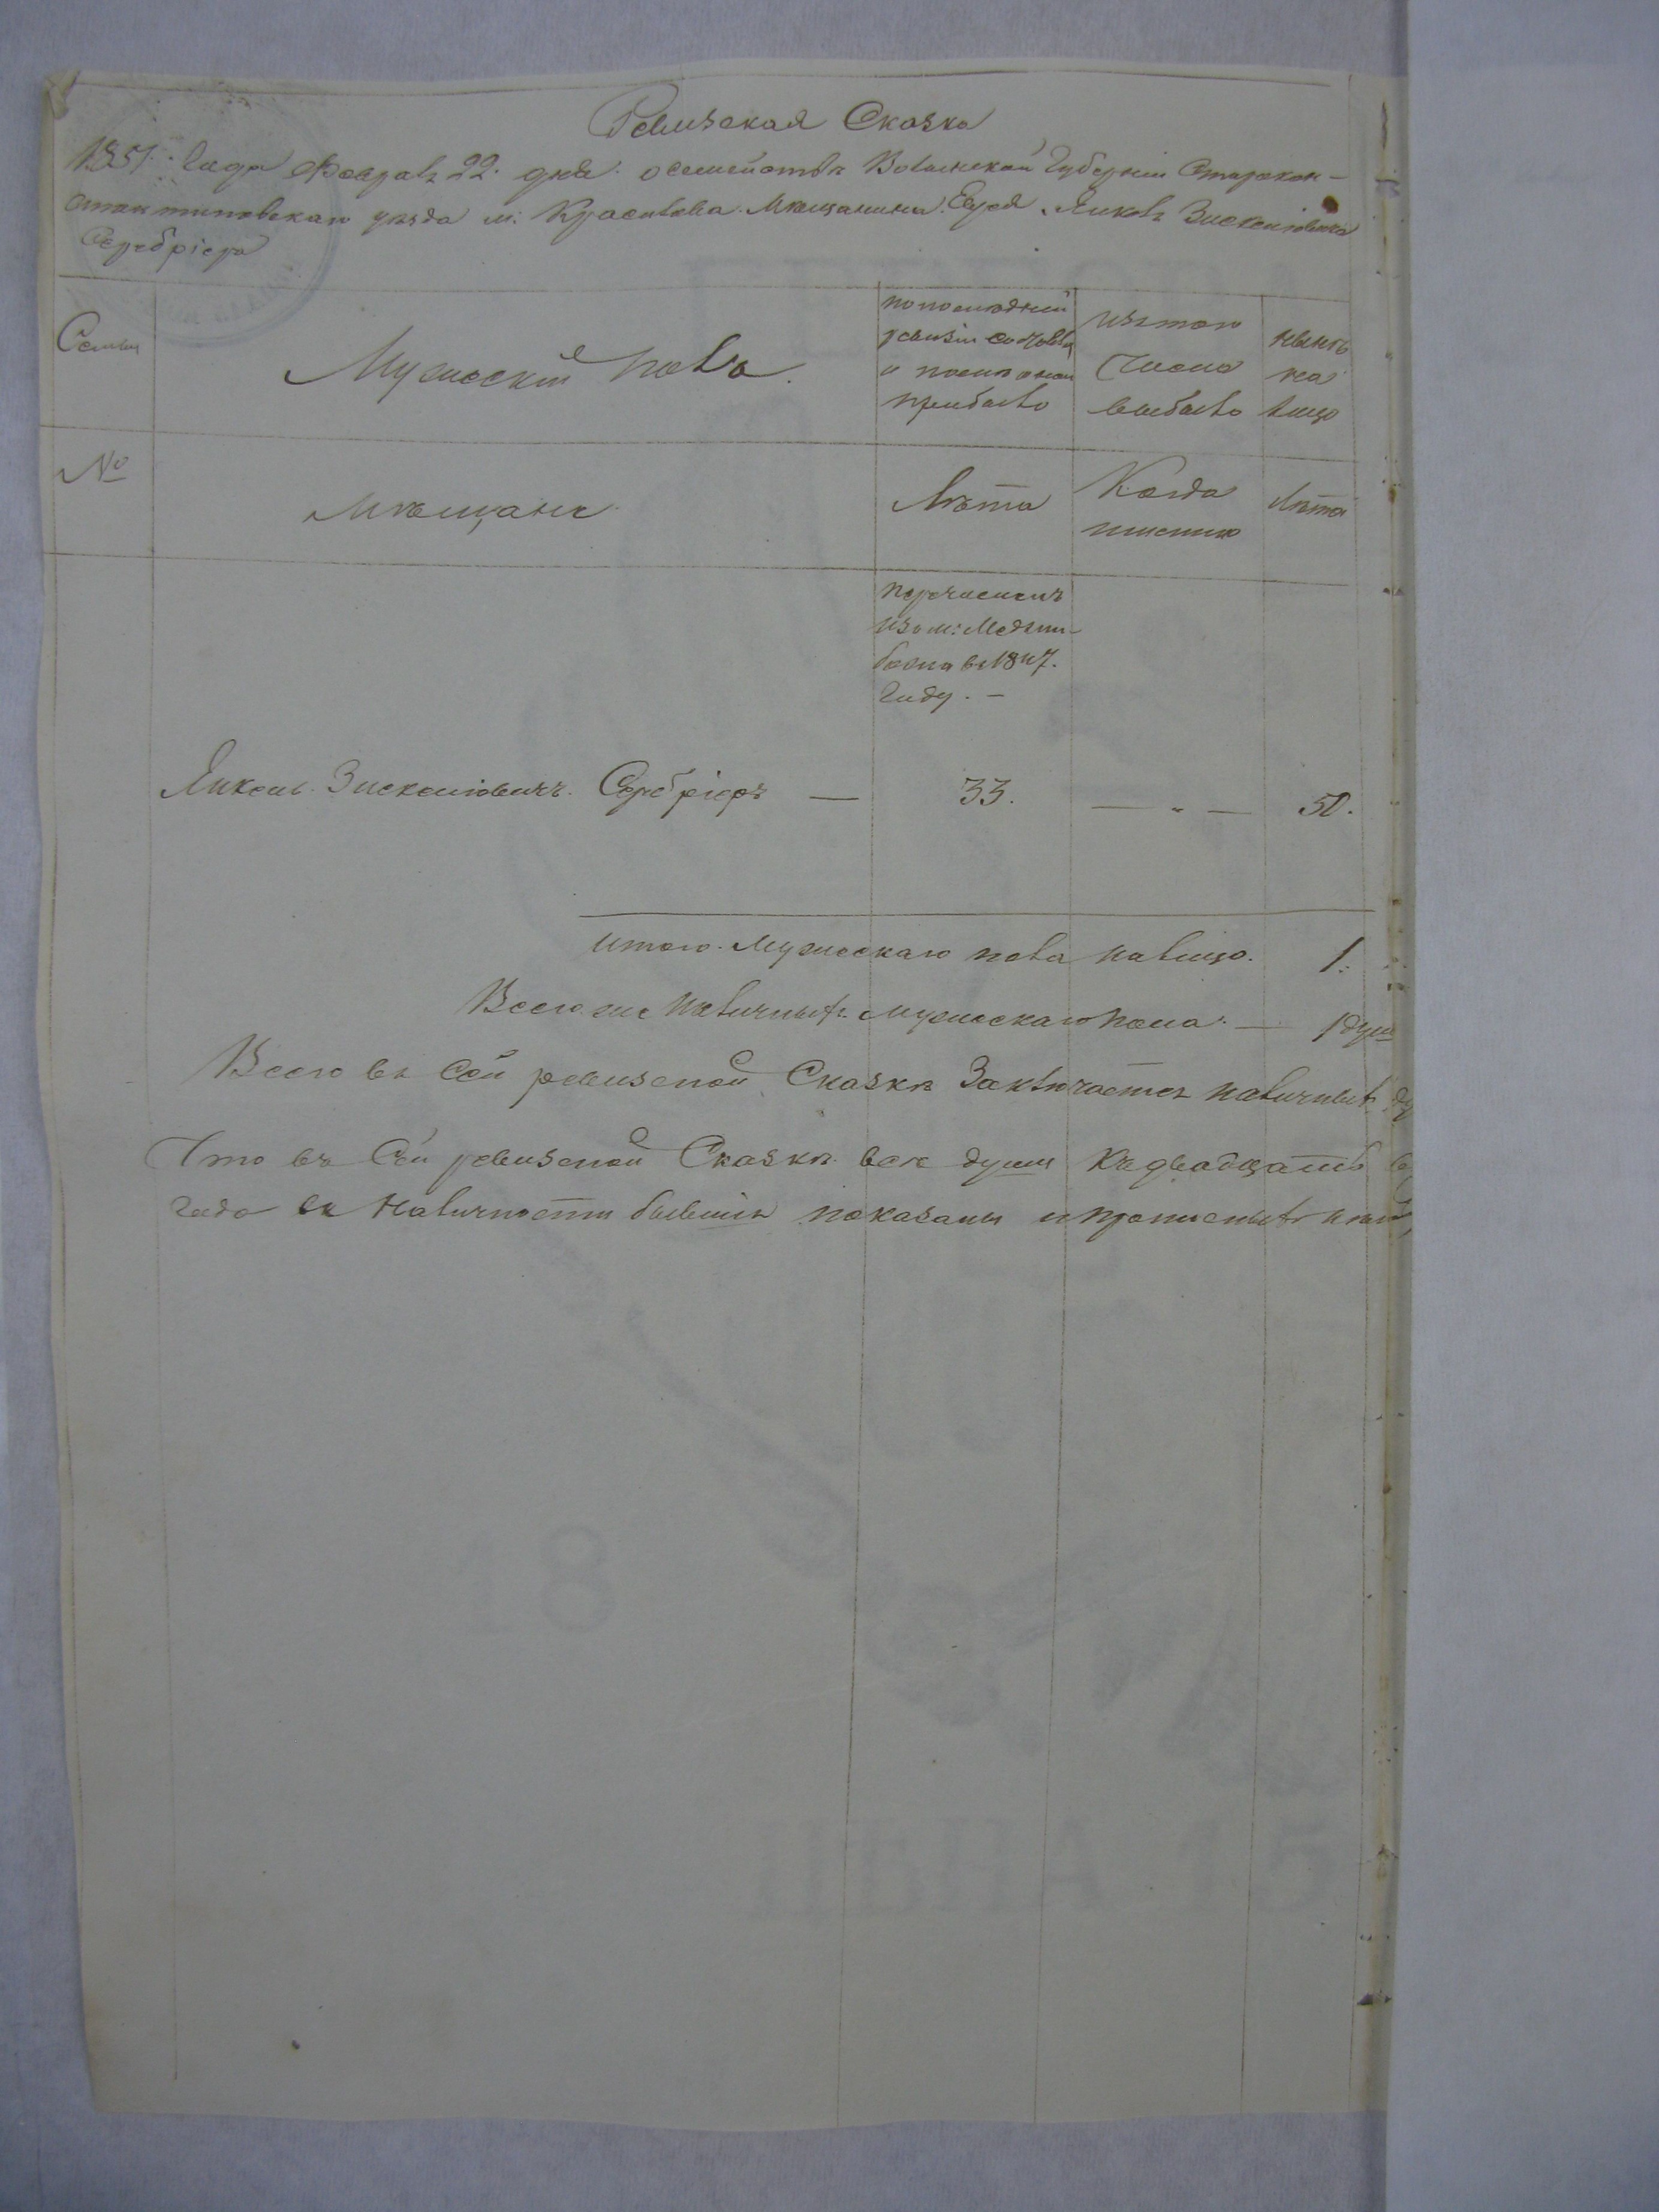 Ревизская Сказка
1851 года Февраль 22 дня о семействѣ Волынской Губерніи Старокон-
стантиновскаго уѣзда м: Красилова Мѣщанина Еврея
Серебріера
Семьи
Мужескій полъ
по послѣдней
ревизіи состояло
и послѣ оной
прибыло
изъ того
числа
выбыло
нынѣ
на
лицо
№
мѣщане
Лѣта
Когда
именно
Лѣта
перечисленъ
изъ м: Меджи-
божа въ 1847.
Году. —
Янкель Зискелiовичъ Серебріеръ — 33. — „ — 50.
Итого Мужескаго пола налицо. 1.
Всего же Наличныхъ Мужескаго пола. — 1 душ
Всего въ Сей ревизской Сказкѣ Заключается наличныхъ
Что въ Сей ревизской Сказкѣ всѣ души
года въ Наличности бывшія показаны и прописныхъ
18